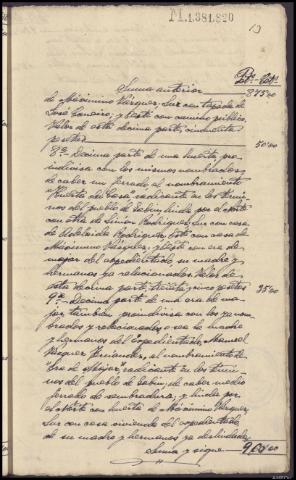 M.1.381.820
13
Pts. Cts.
Suma anterior 375'00
de Máximino Vázquez, Sur con tapada de
José Loueiro, y Oeste con camino público.
Valor de esta décima parte, cincuenta
pesetas 50'00
8ª Décima parte de una huerta pro
indivisa con los mismos nombrados,
de caber un ferrado, al nombramiento
"Huerta de Casa", radicante en los térmi-
nos del pueblo de Sabin, linda por el Norte
con otra de Rodríguez, Sur con casa
de Adelaida Rodríguez, Este con casa de
Máximino Vázquez, y Oeste con era de
majar del expedientado, su madre y
hermanos ya relacionados. Valor de
esta décima parte, treinta y cinco pesetas 35'00
9ª Décima parte de una era de ma-
jar, también proindivisa con los ya nom-
brados y relacionados, o sea la madre
y hermanos del expedientado, Manuel
Vázquez Fernández, al nombramiento de
"Era de Majar", radicante en los térmi-
nos del pueblo de Sabin, de caber medio
ferrado de sembradura; y linda por
el Norte con huerta de Máximino Vázquez,
Sur con casa vivienda del expedientado,
de su madre y hermanos ya deslindada,
Suma y sigue